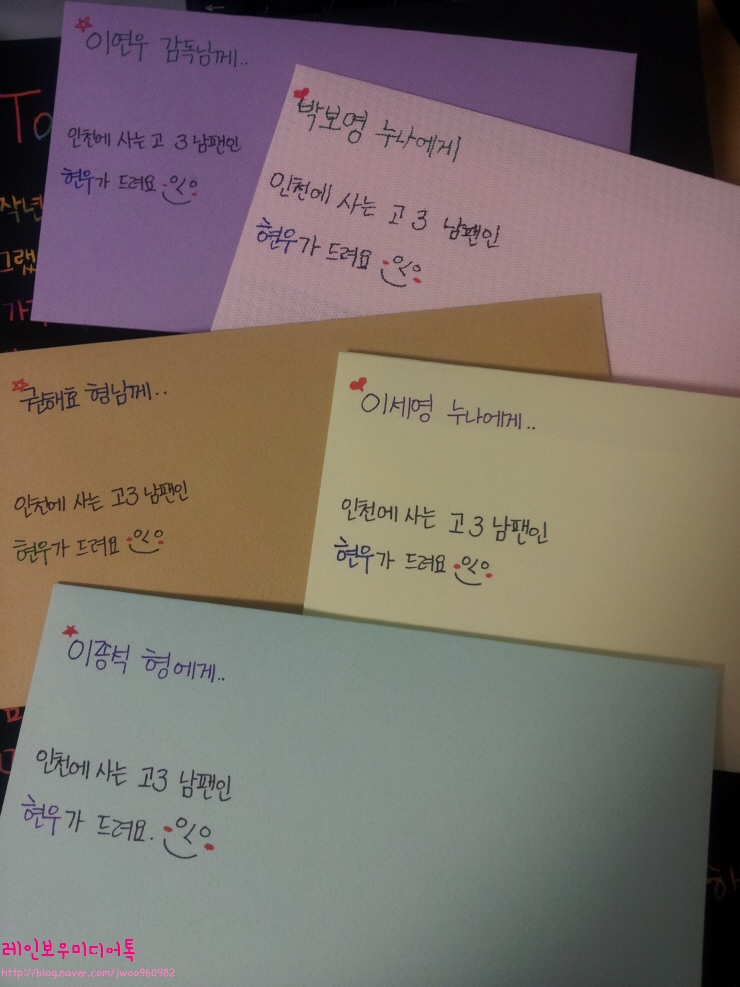 이연우 감독님께..
인천에 사는 고 3 남팬인
현우가 드려요
박보영 누나에게
인천에 사는 고 3 남팬인
현우가 드려요
권해효 형님께..
인천에 사는 고3 남팬인
현우가 드려요
이세영 누나에게..
인천에 사는 고3 남팬인
현우가 드려요
이종혁 형에게..
인천에 사는 고3 남팬인
현우가 드려요.
To
작년
그랬
하
레인보우미디어톡
http://blog.naver.com/jwoo960982